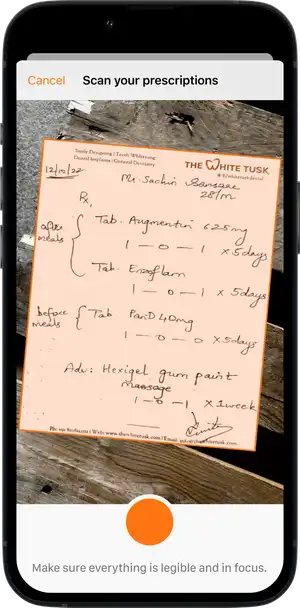 Cancel Scan your prescriptions
Smile Designing | Teeth Whitening
Dental Implants | General Dentistry
THE WHITE TUSK
12/10/22
Mr. Sachin
28/M
Rx,
after meals
Tab. Augmentin 625mg
1 — 0 — 1 x 5days
Tab. Enzoflam
1 — 0 — 1 x 5days
before meals
Tab PanD 40mg
1 — 0 — 0 x 5days
Adv: Hexigel gum paint
massage
1 — 0 — 1 x 1week
Make sure everything is legible and in focus.